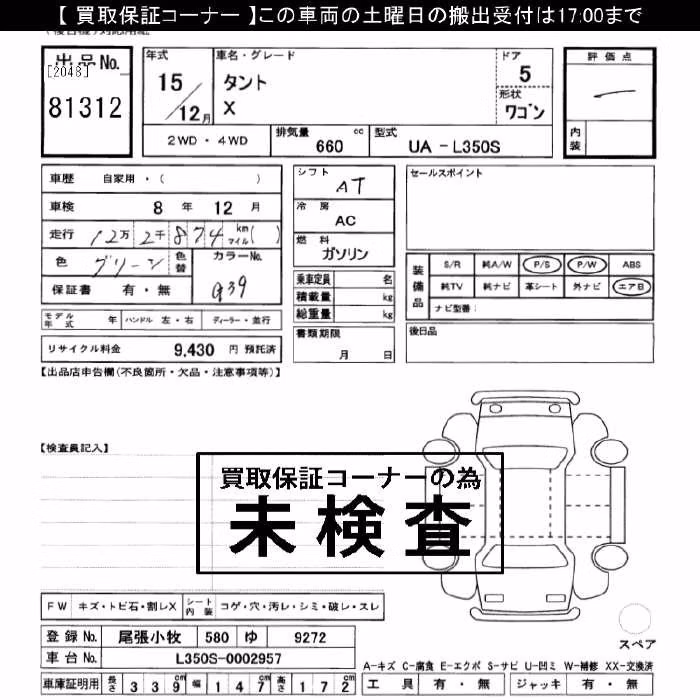 【 買取保証コーナー 】この車両の土曜日の搬出受付は17:00まで
出品No.
[2048]
81312
年式
15/12月
車名・グレード
タント
X
ドア
5
形状
ワゴン
評価点
内装
2WD・4WD
排気量 660 cc
型式 UA-L350S
車歴 自家用・( )
車検 8 年 12 月
走行 12万2千874 km マイル( )
色 グリーン 色替
カラーNo. G39
保証書 有・無
シフト AT
冷房 AC
燃料 ガソリン
乗車定員 名
積載量 kg
総重量 kg
書類期限
月 日
セールスポイント
装備品
S/R 純A/W P/S P/W ABS
純TV 純ナビ 革シート 外ナビ エアB
ナビ型番:
後日品
モデル年式 年 ハンドル 左・右 ディーラー・並行
リサイクル料金 9,430 円 預託済
【出品店申告欄(不良箇所・欠品・注意事項等)】
【検査員記入】
買取保証コーナーの為
未検査
FW キズ・トビ石・割レX シート内装 コゲ・穴・汚レ・シミ・破レ・スレ
登録No. 尾張小牧 580 ゆ 9272
車台No. L350S-0002957
車庫証明用 長さ 339cm 幅 147cm 高さ 172cm
スペア
A-キズ C-腐食 E-エクボ S-サビ U-凹ミ W-補修 XX-交換済
工具 有・無 ジャッキ 有・無